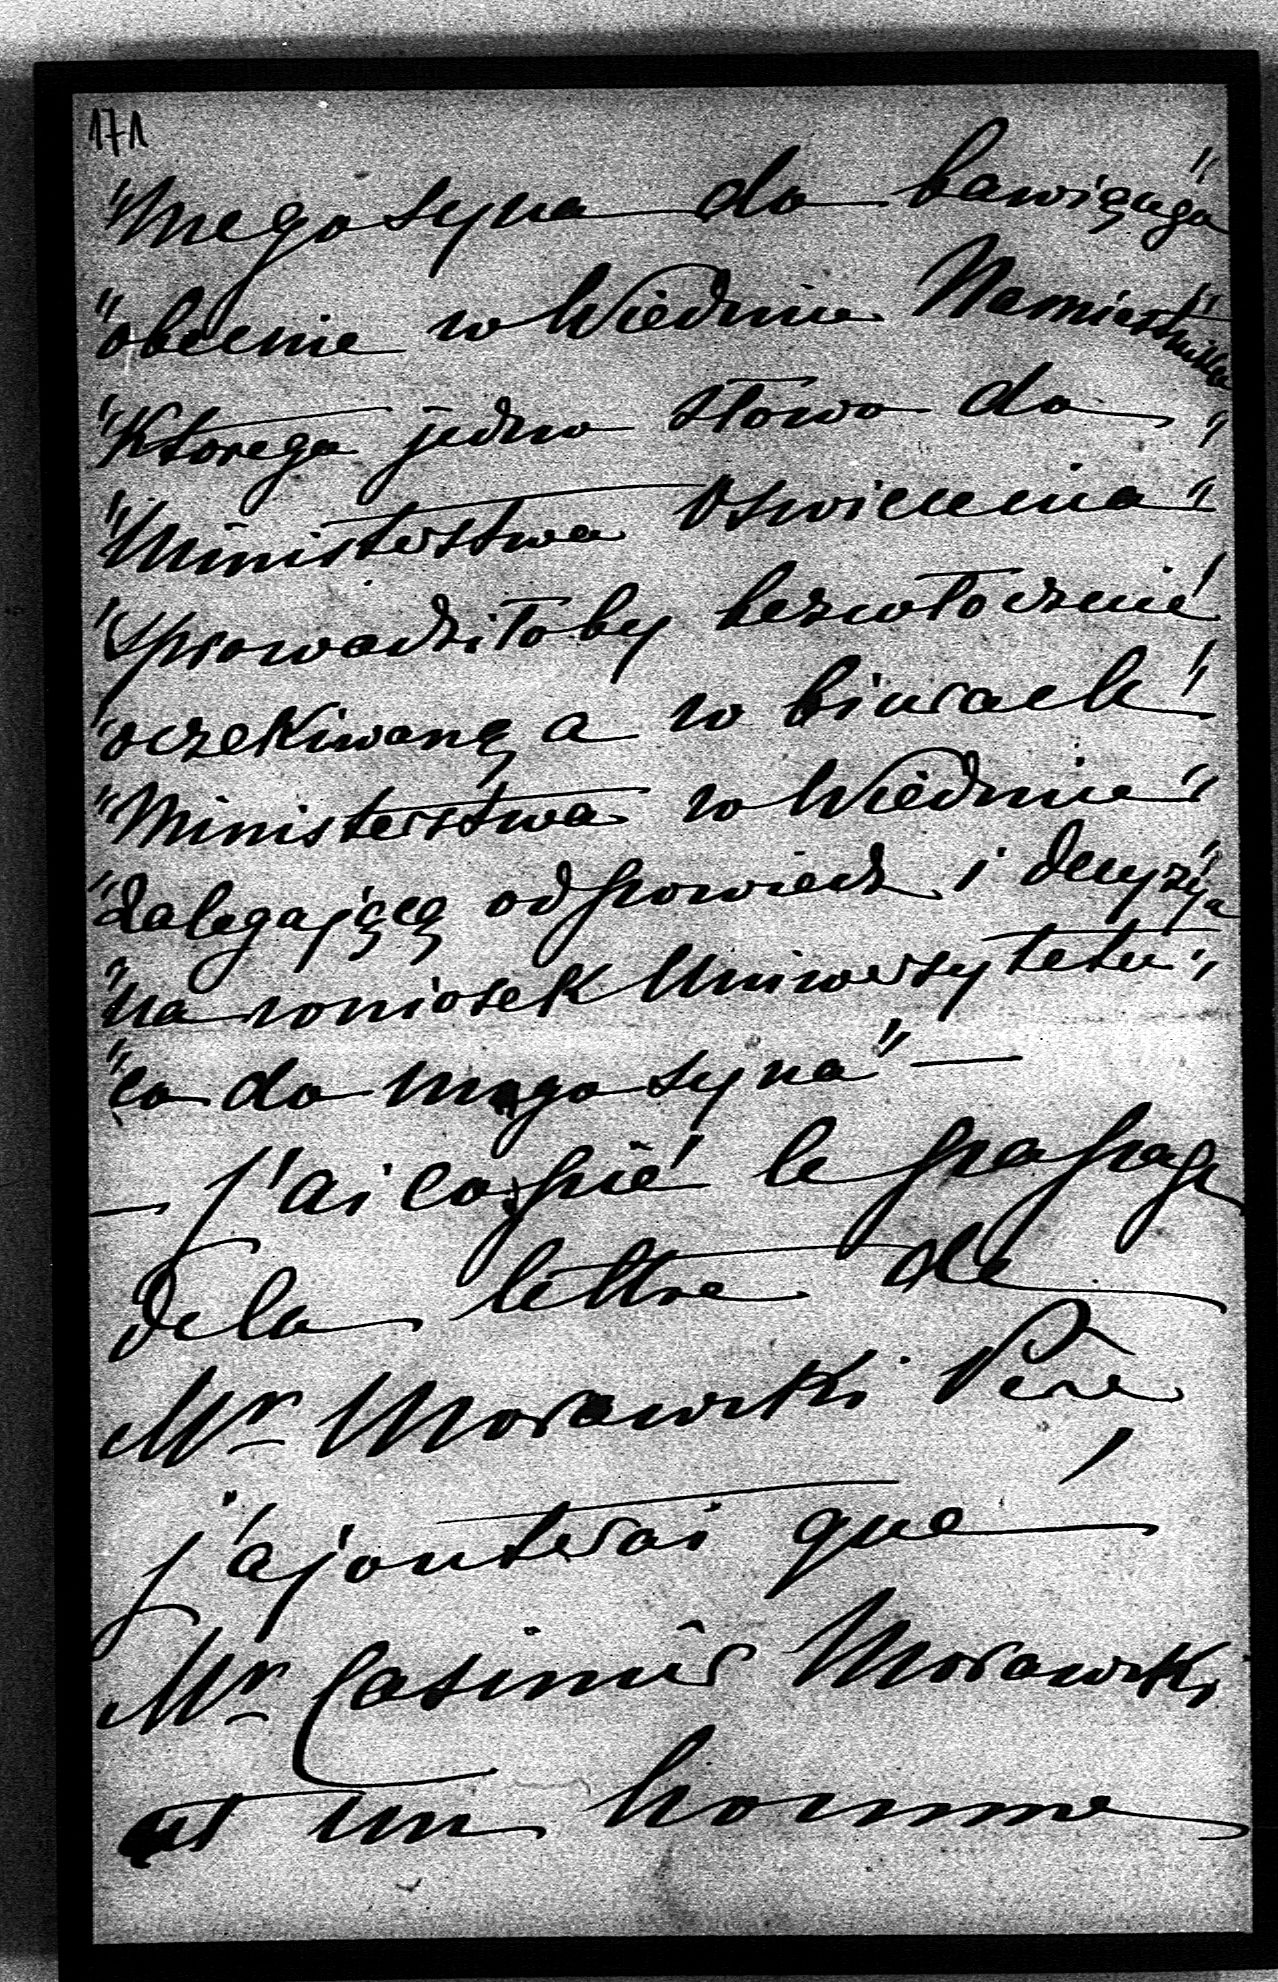 171
"mego syna do bawiącego"
"obecnie w Wiedniu Namiestnika"
"Ktorego jedno słowo do"
"Ministerstwa Oswiecenia"
"sprowadziłoby bezwłocznie"
"oczekiwaną a w biurach"
"Ministerstwa w Wiedniu"
"zalegającą odpowiedz i decyzyą
"na wniosek Uniwersytetu"
"co do mego syna" —
— j'ai copié le passage
de la lettre de
Mr Morawski Père
j'ajouterai que
Mr Casimir Morawski
est un homme